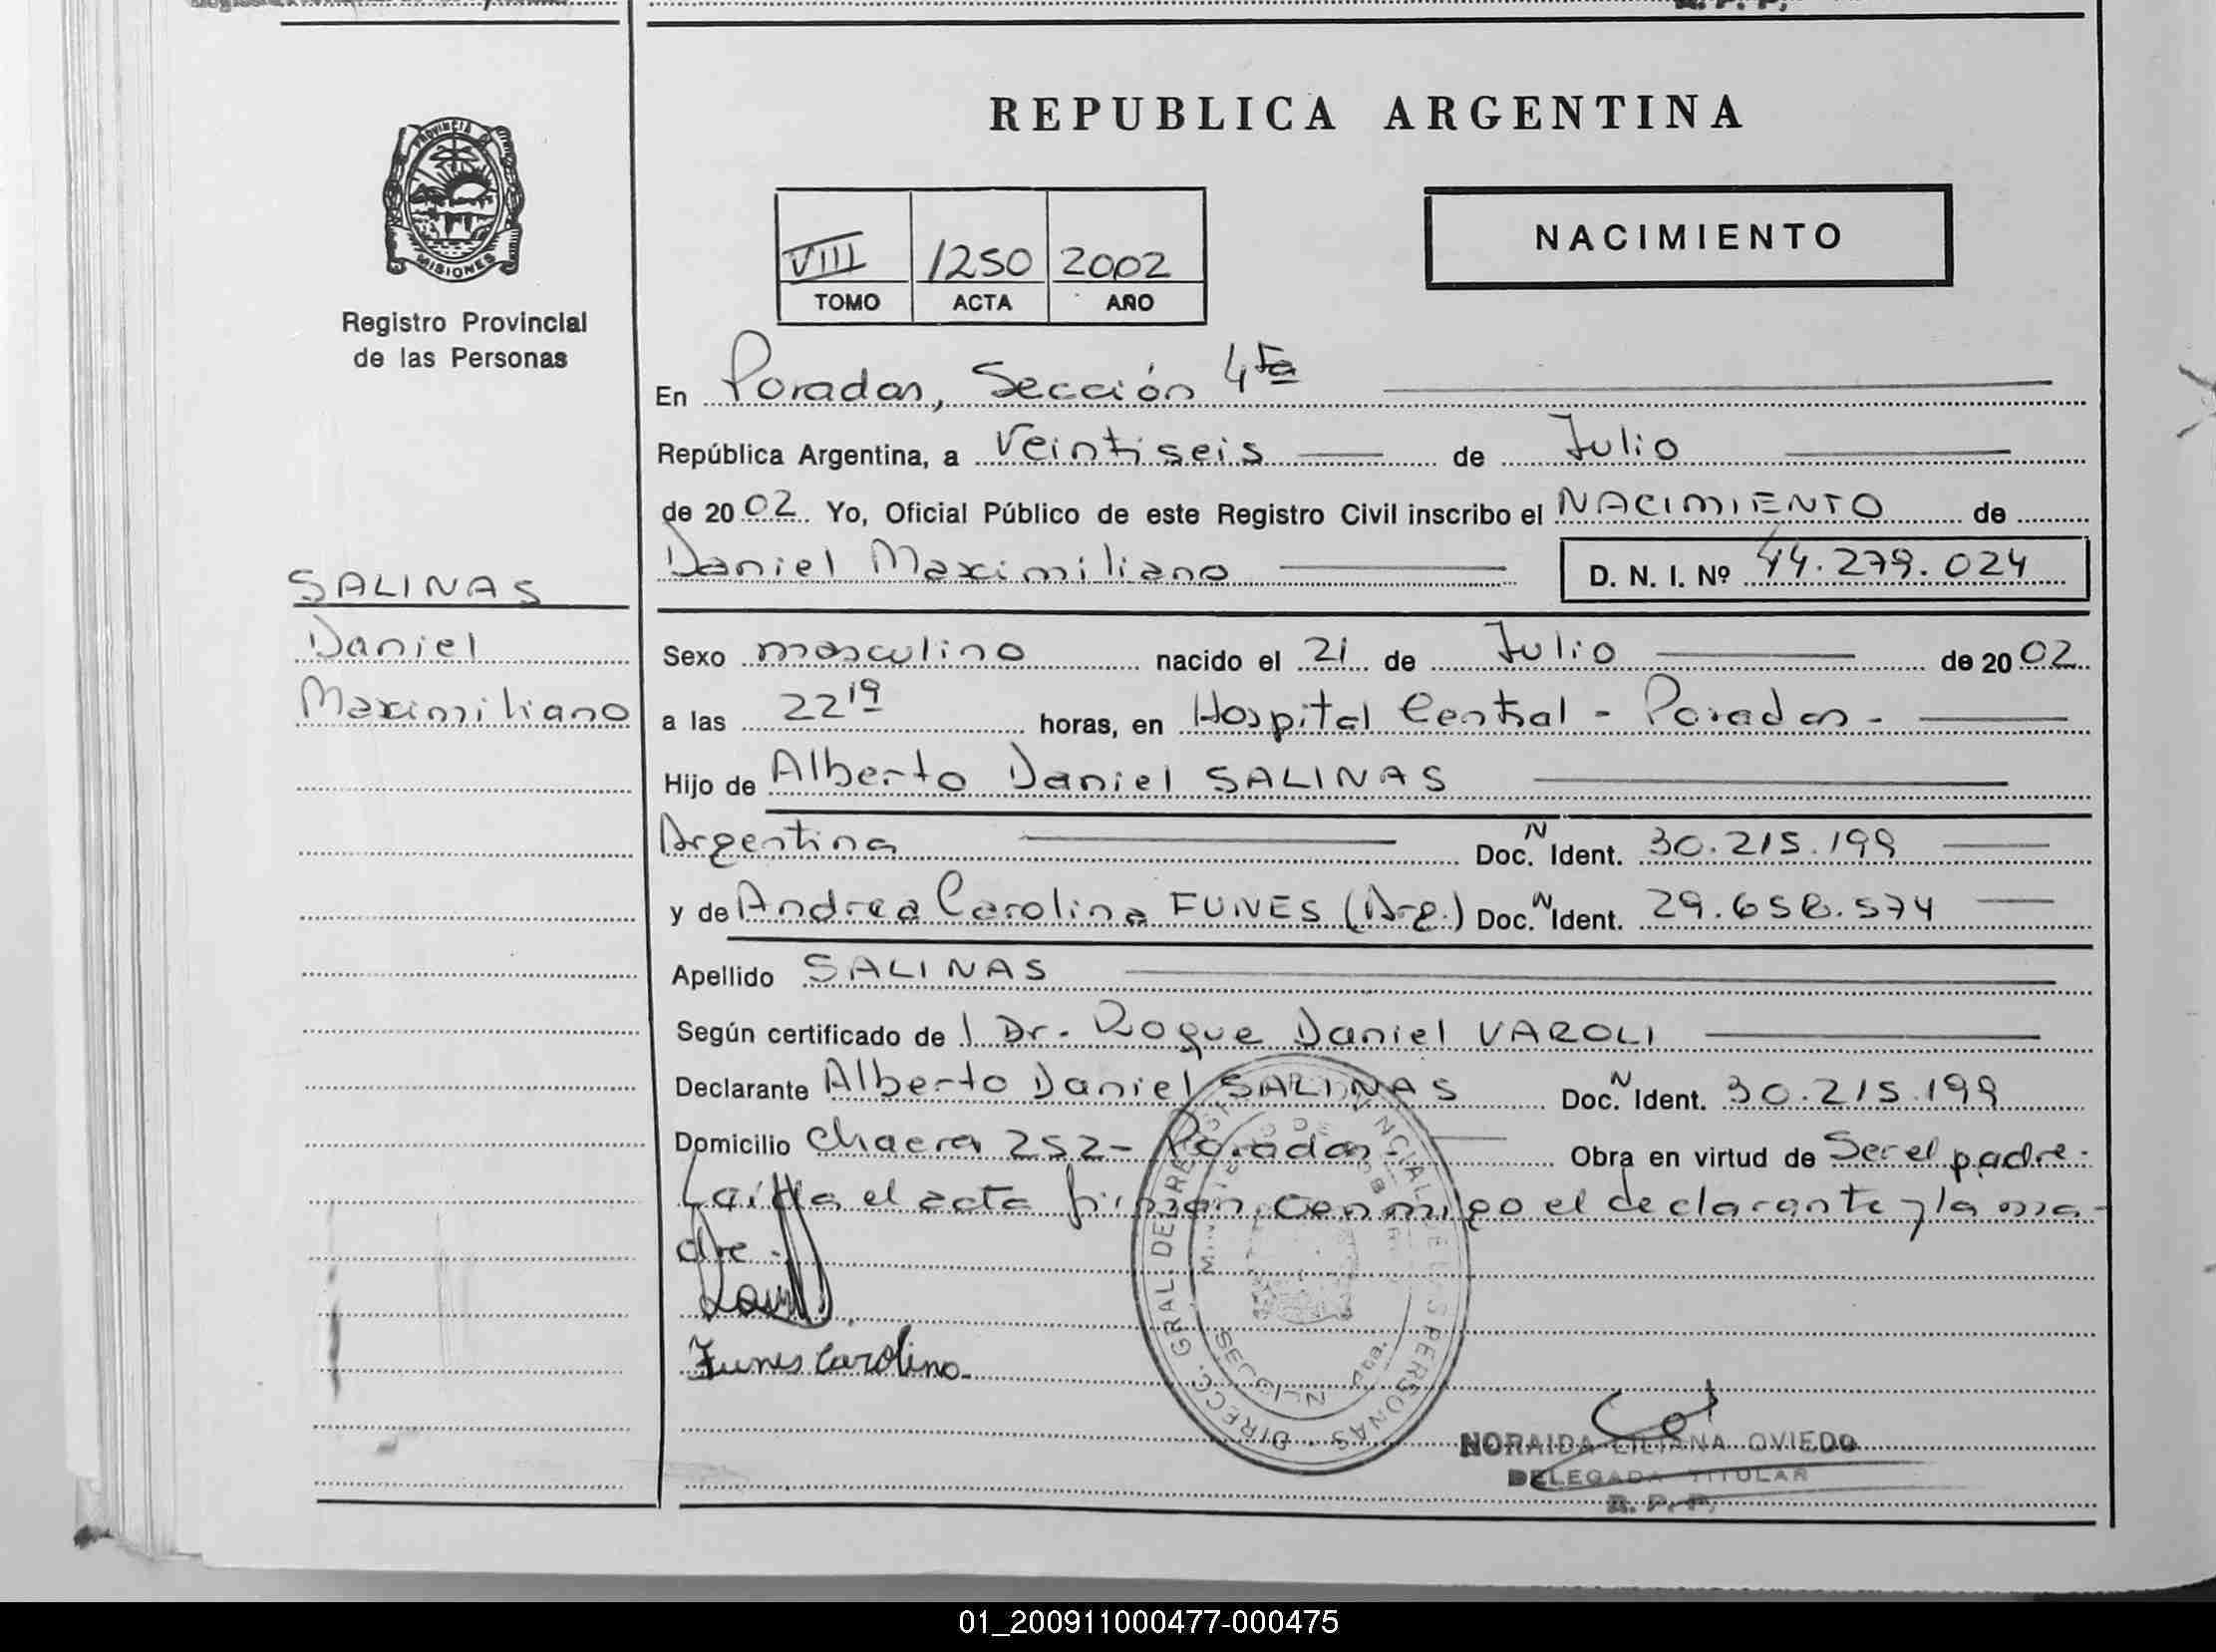 REPUBLICA ARGENTINA
PROVINCIA DE
MISIONES
Registro Provincial
de las Personas
NACIMIENTO
VIII 1250 2002
TOMO ACTA AÑO
En Posadas, Sección 4ta
República Argentina, a Veintiseis de Julio
de 2002 Yo, Oficial Público de este Registro Civil inscribo el NACIMIENTO de
Daniel Maximiliano D. N. I. Nº 44.279.024
SALINAS
Daniel
Maximiliano
Sexo masculino nacido el 21 de Julio de 2002
a las 22 19 horas, en Hospital Central - Posadas -
Hijo de Alberto Daniel SALINAS
Argentina Doc. N Ident. 30.215.199
y de Andrea Carolina FUNES (Arg.) Doc. N Ident. 29.658.574
Apellido SALINAS
Según certificado de l Dr. Roque Daniel VAROLI
Declarante Alberto Daniel SALINAS Doc. N Ident. 30.215.199
Domicilio Chacra 252 - Posadas - Obra en virtud de Ser el padre -
Leída el acta firman conmigo el declarante y la ma-
dre -
Funes Carolina
DIRECC. GRAL. DEL REG PROVINCIAL DE LAS PERSONAS
MISIONES
NORAIDA LILIANA OVIEDO
DELEGADA TITULAR
R. P. P.
01_200911000477-000475